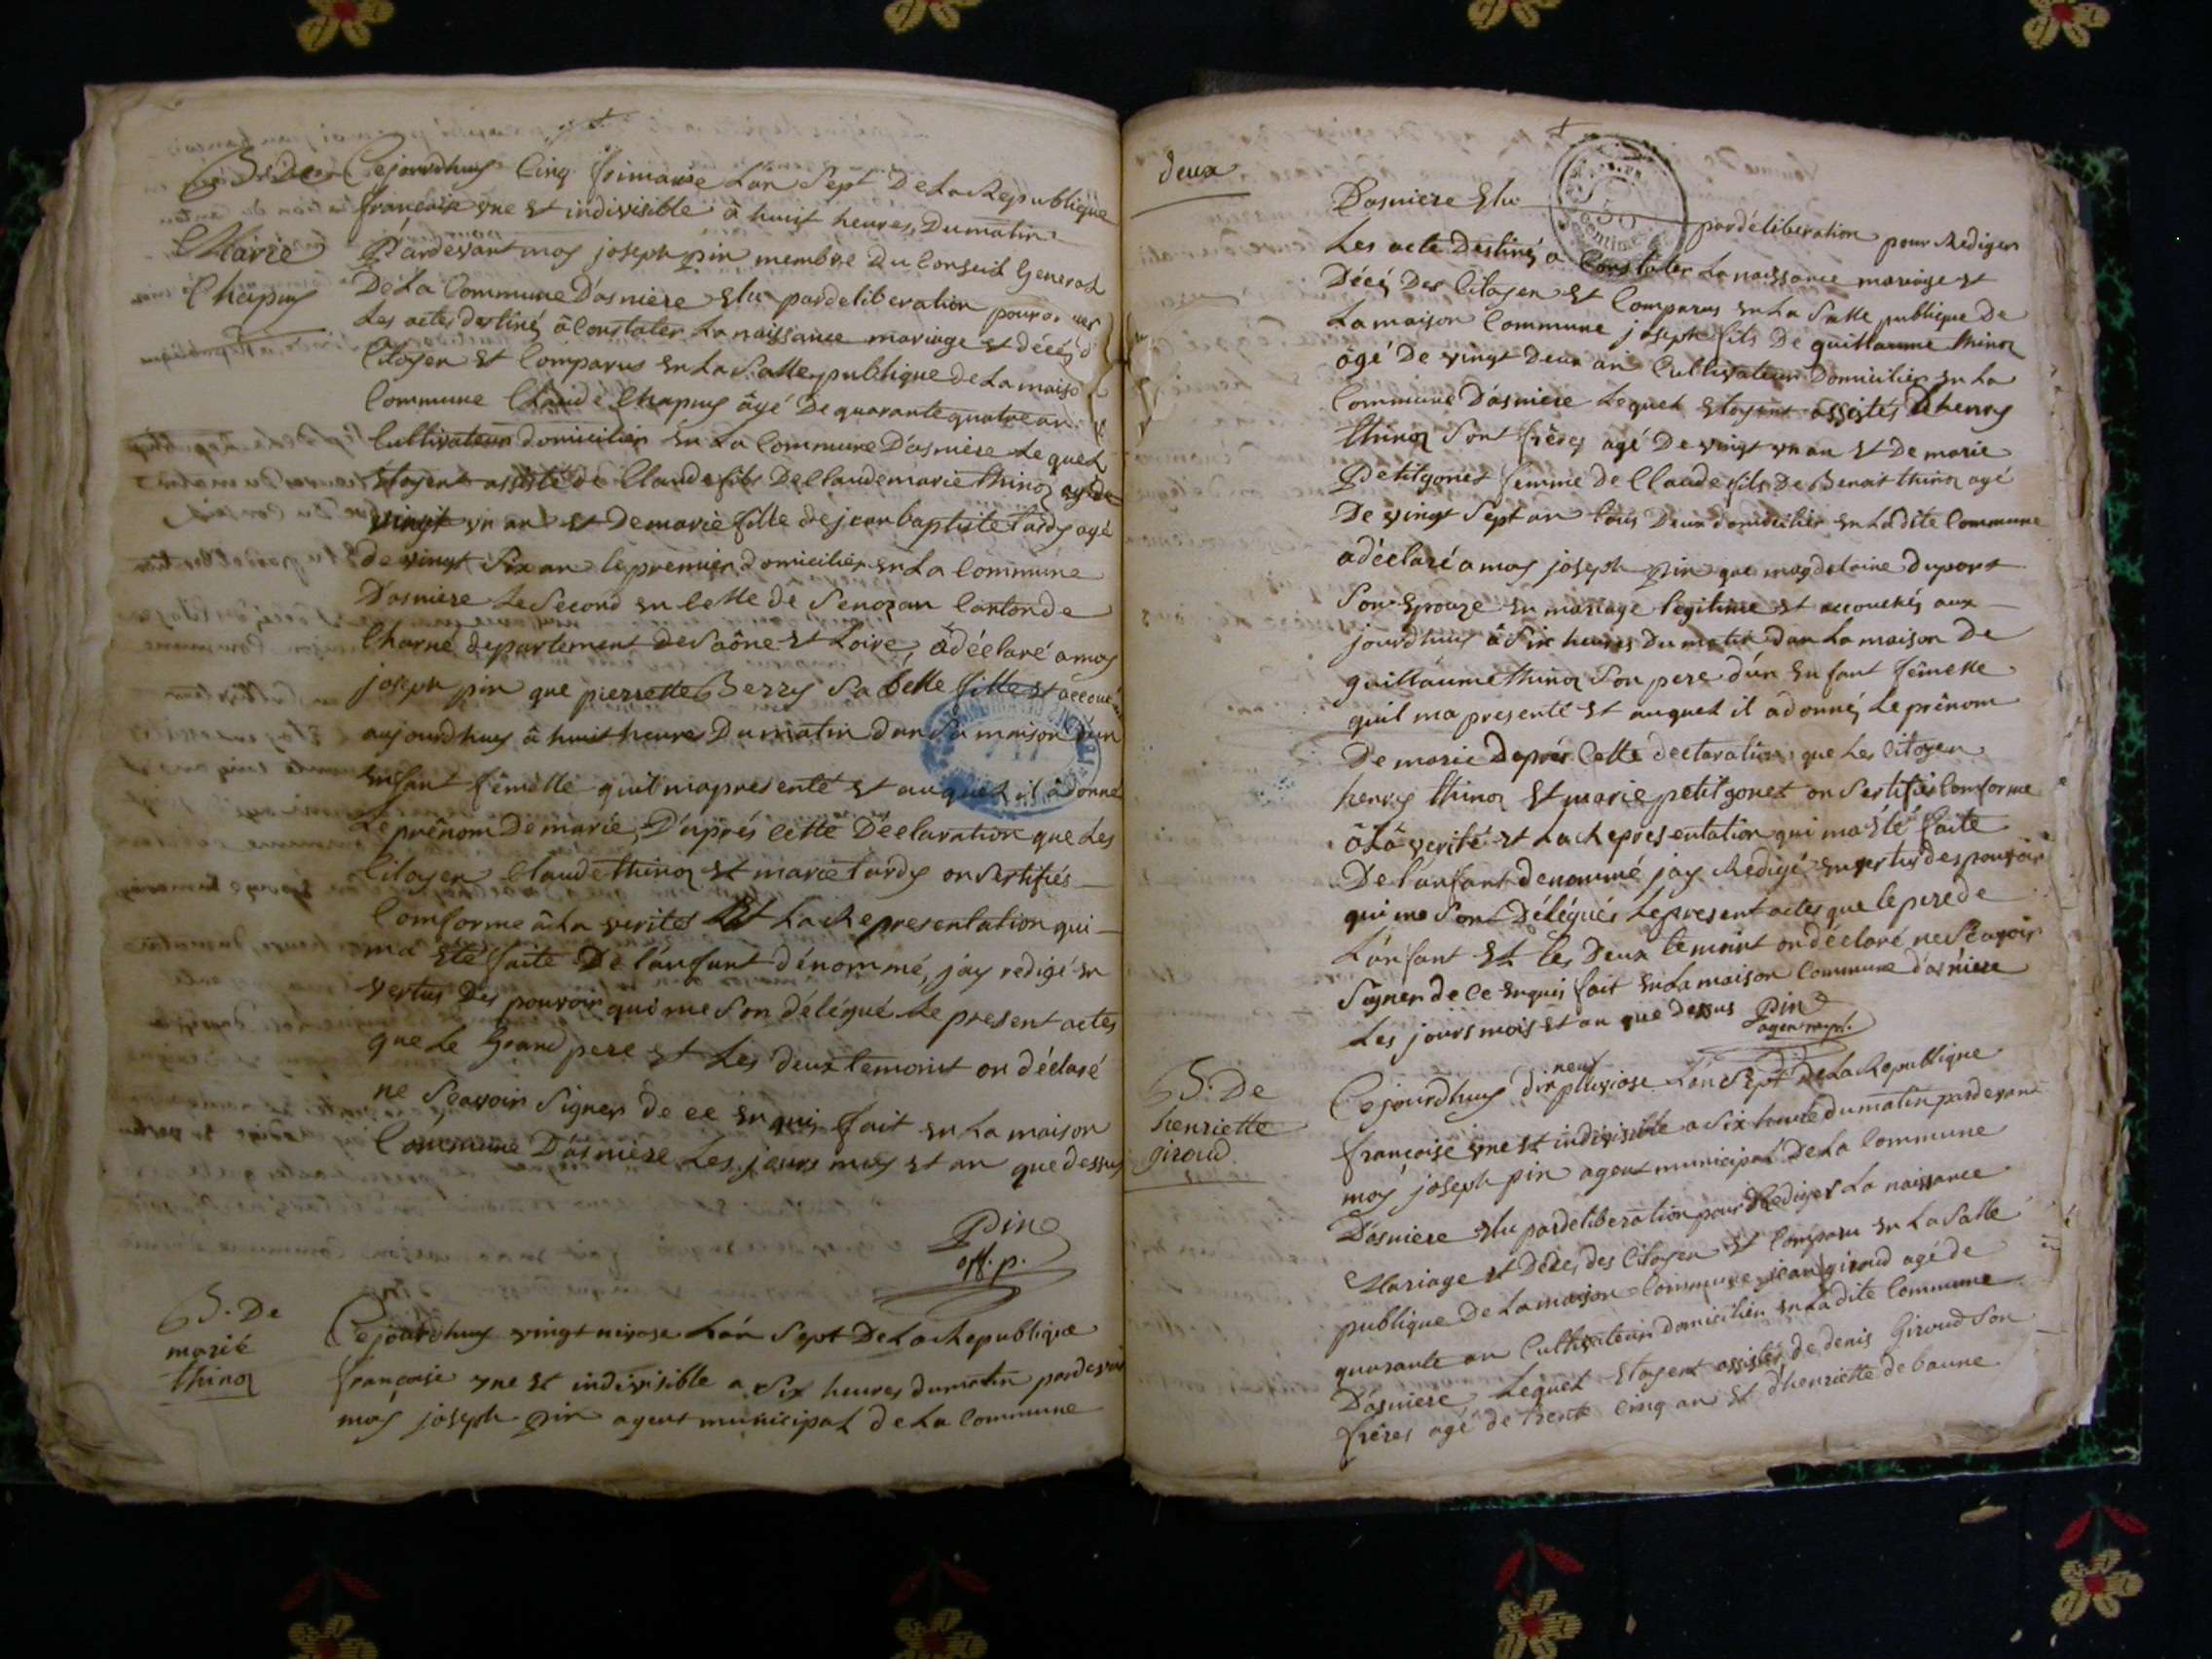 B. de
Marie
Chapuy
Cejourdhuy Cinq frimaire L'an Sept De La Republique
françoise vne Et indivisible â huit heures, Dumatin
Pardevant moy joseph pin membre Du Conseil General
De La Commune D'asniere Elu pardeliberation pour
Les actes destiné, â Constater La naissance mariage Et décéj
Citoyen Et Comparus En La Salle publique de La maiso
Commune Claude Chapuy âgé De quarante quatre an
Cultivateur domicilier En La Commune D'asniere Le quel
Etoyent assisté de Claude fils De Claudemarie thinon agé de
vingt vn an Et De marie fille de jean baptiste Tardy agé
de vingt Six an le premier domicilier En La Commune
D'asniere Le Second En Celle de Senozan Canton de
Charné departement de Saône Et Loire, âdéclaré a moy
joseph pin que pierrette Berry Sa belle fille Et accouc
aujourdhuy â huit heures Dumatin dan Sa maison d'un
Enfant fêmelle quil ma presenté Et auquel il âdonné
Le prênom De marie, D'aprés cette Déclaration que Les
Citoyen Claude thinon Et marie tardy on Sertifiés
Comforme â La verités Et La Representation qui
ma Eté faite De l'anfant dénommé, jay redigé En
vertus Des pouvoir qui me Son délégué Le present actes
que Le Grand pere Et Les deux temoint on déclaré
ne Sçavoir Signer de ce Enquis fait En La maison
Commune D'asniere Les jours mois Et an que dessus
Pin
off. p.
B. De
marié
thinon
Cejourdhuy vingt nivose L'an Sept De La Republique
françoise vne Et indivisible a Six heures dumatin pardevan
moy joseph pin agent municipal de La Commune
deux
D'asniere Elu par déliberation pour Rediger
Les acte Destiné, a Constater La naissance mariage Et
Décéj Des Citoyen Et Comparus En La Salle publique De
La maison Commune joseph fils De guillaume thinon
âgé De vingt Deux an Cultivateur Domicilier En La
Commune D'asniere Lequel Etoyent assistés D'henry
thinon Sont frêres agé De vingt vn an Et De marie
Petitgonet femme de Claude fils De Benoit thinon agé
De vingt Sept an tous Deux domicilier En La dite Commune
a déclaré a moy joseph pin que magdelaine duport
Son Epouze En mariage legitime Et accouchés aux
jourdhuy â Six heures Du matin dan La maison De
guillaume thinon Son pere d'un Enfant fêmelle
quil ma presenté Et auquel il adonné, Le prênom
De marie Daprés Cette declaration que Les Citoyen
henry thinon Et marie petitgonet on Sertifiés Comforme
â La verité Et La Representation qui ma Eté faite
De l'anfant denommé jay Redigé En vertus des pouvoir
qui me Sont Délégués Le present actes que le pere de
L'anfant Et les Deux temoint on déclaré ne Sçavoir
Signer de ce Enquis fait En La maison Commune d'asniere
Les jours mois Et an que dessus Pin
agent mpl.
B. De
henriette
giroud
neuf
Cejourdhuy dix pluviose L'an Sept De La Republique
françoise vne Et indivisible a Six heure du matin pardevant
moy joseph pin agent municipal De La Commune
D'asniere Elu par deliberation pour Rediger La naissance
Mariage Et Décéj des Citoyen Et Comparu En La Salle
publique De La maison Commune jean giroud agé de
quarante an Cultivateur domicilier En La dite Commune
D'asniere Lequel Etoyent assistés de denis Giroud Son
frêres agé de trente cinq an Et d'henriette debaune